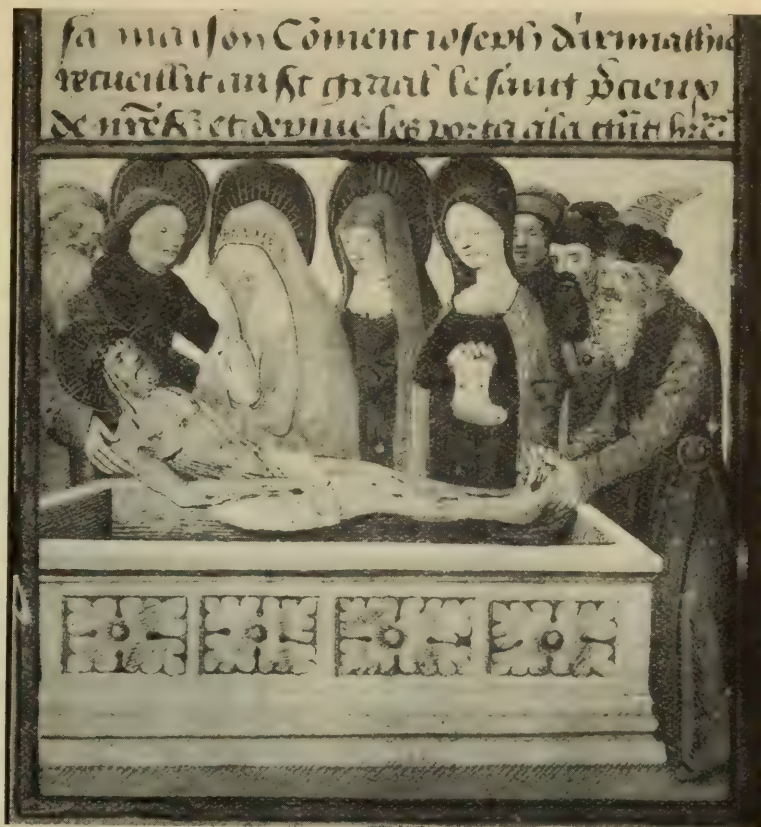 sa maison Cõment ioseph darimathie
recueillit au st graal le sanct p̃cieux
de nrẽ sr et depuis les porta a la